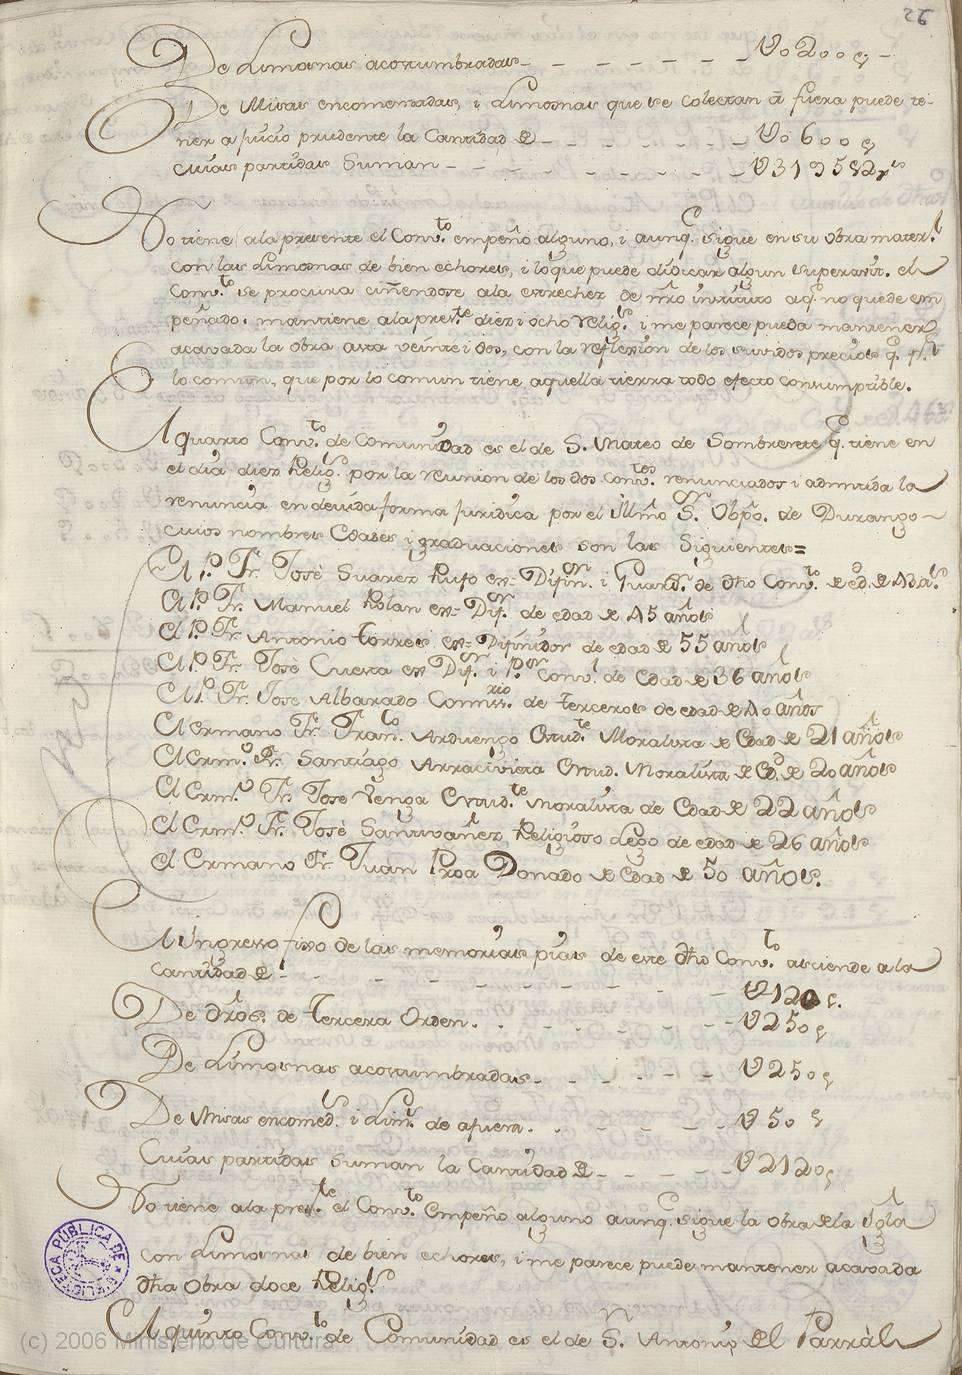 26
De Limosnas acostumbradas - - - - - - - U0200 ps -
De Misas encomendadas, i Limosnas que se colectan â fuera puede te-
ner a juicio prudente la Cantidad de - - - - - - U0600 ps
cuias partidas suman - - - - - - - -
No tiene ala presente el Conv.to empeño alguno, i aunq.e sigue en su obra mater.l
con las Limosnas de bien echores, i lo que puede dedicar algun superavit. el
Conv.to se procura ciñendose ala estrechez de nro instituto a q.e no quede em
peñado. mantiene ala pres.te diez i ocho relig.s i me parece pueda mantener
acavada la obra asta veinte i dos, con la reflexion de los suvidos precios q.e p.r
lo comun, que por lo comun tiene aquella tierra todo efecto consumptible.
Al quarto Conv.to de Comunidad es el de S. Mateo de Sombrerete q.e tiene en
el dia diez Relig.s por la reunion de los dos conv.tos renunciados i admitida la
renuncia en devida forma juridica por el Illmo S.r Obpo. de Durango -
cuios nombres Edades i graduaciones son las Siguientes=
El P. Fr. Josè Suarez Rufo ex= Difin.r i Guard.n de dho Conv.to de ed.d de 42 a.s
El P. Fr. Manuel Rolan ex= Dif.r de edad de 45 años
El P. Fr. Antonio Torres ex= Difinidor de edad de 55 años
El P. Fr. Josè Cuesta ex Dif.r i P.or Conv.l de Edad de 36 años
El P. Fr. Jose Albarado Comiss.rio de terceros de edad de 40 años
El Ermano Fr. Fran.co Arduengo Estud.te Moralista de Edad de 21 años
El Erm.o Fr. Santiago Arracivieta Estud. Moralista de Ed.d de 20 años
El Erm.o Fr. Jose Venga Estud.te Moralista de Edad de 22 años
El Erm.o Fr. Josè Santivañez Religioso Lego de edad de 26 años
El Ermano Fr. Juan Roa Donado de Edad de 50 años.
Al Yngresso fixo de las memorias pias de este dho Conv.to asciende a la
cantidad de - - - - - - - - - U120 ps.
De dros. de tercera Orden. - - - - - - U250 ps
De Limosnas acostumbradas - - - - - - U250 ps
De Misas encomed.s i Lim.s de afuera. - - - - U 50 ps
Cuias partidas suman la Cantidad de - - - - U2120 ps
No tiene ala pres.te el Conv.to Empeño alguno aunq.e sigue la obra de la Yglâ
con Limosnas de bien echores, i me parece puede mantener acavada
dha Obra doce Relig.s
Al quinto Conv.to de Comunidad es el de S.n Antonio del Parràl
BIBLIOTECA PÚBLICA DE
(c) 2006 Ministerio de Cultura